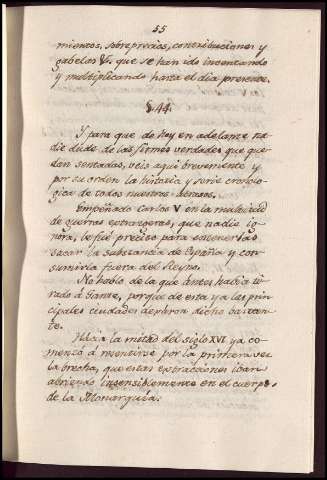 55
mientos, sobreprecios, contribuciones y
gabelas &. que se han ido inventando
y multiplicando hasta el dia presente.
§. 44.
Y para que de hoy en adelante na
die dude de las firmes verdades que que
dan sentadas, veis aqui brevemente y
por su orden la historia y serie cronolo
gica de todos nuestros atrasos.
Empeñado Carlos V en la multitud
de guerras extrangeras, que nadie ig
nora, le fué preciso para sostenerlas
sacar la substancia de España y con
sumirla fuera del Reyno.
No hablo de la que antes havia ti
rado á Gante, porque de esta ya las prin
cipales ciudades dexaron dicho bastan
te.
Hácia la mitad del siglo XVI ya co
menzó á sentirse por la primera vez
la brecha, que estas extracciones iban
abriendo insensiblemente en el cuerpo
de la Monarquía.